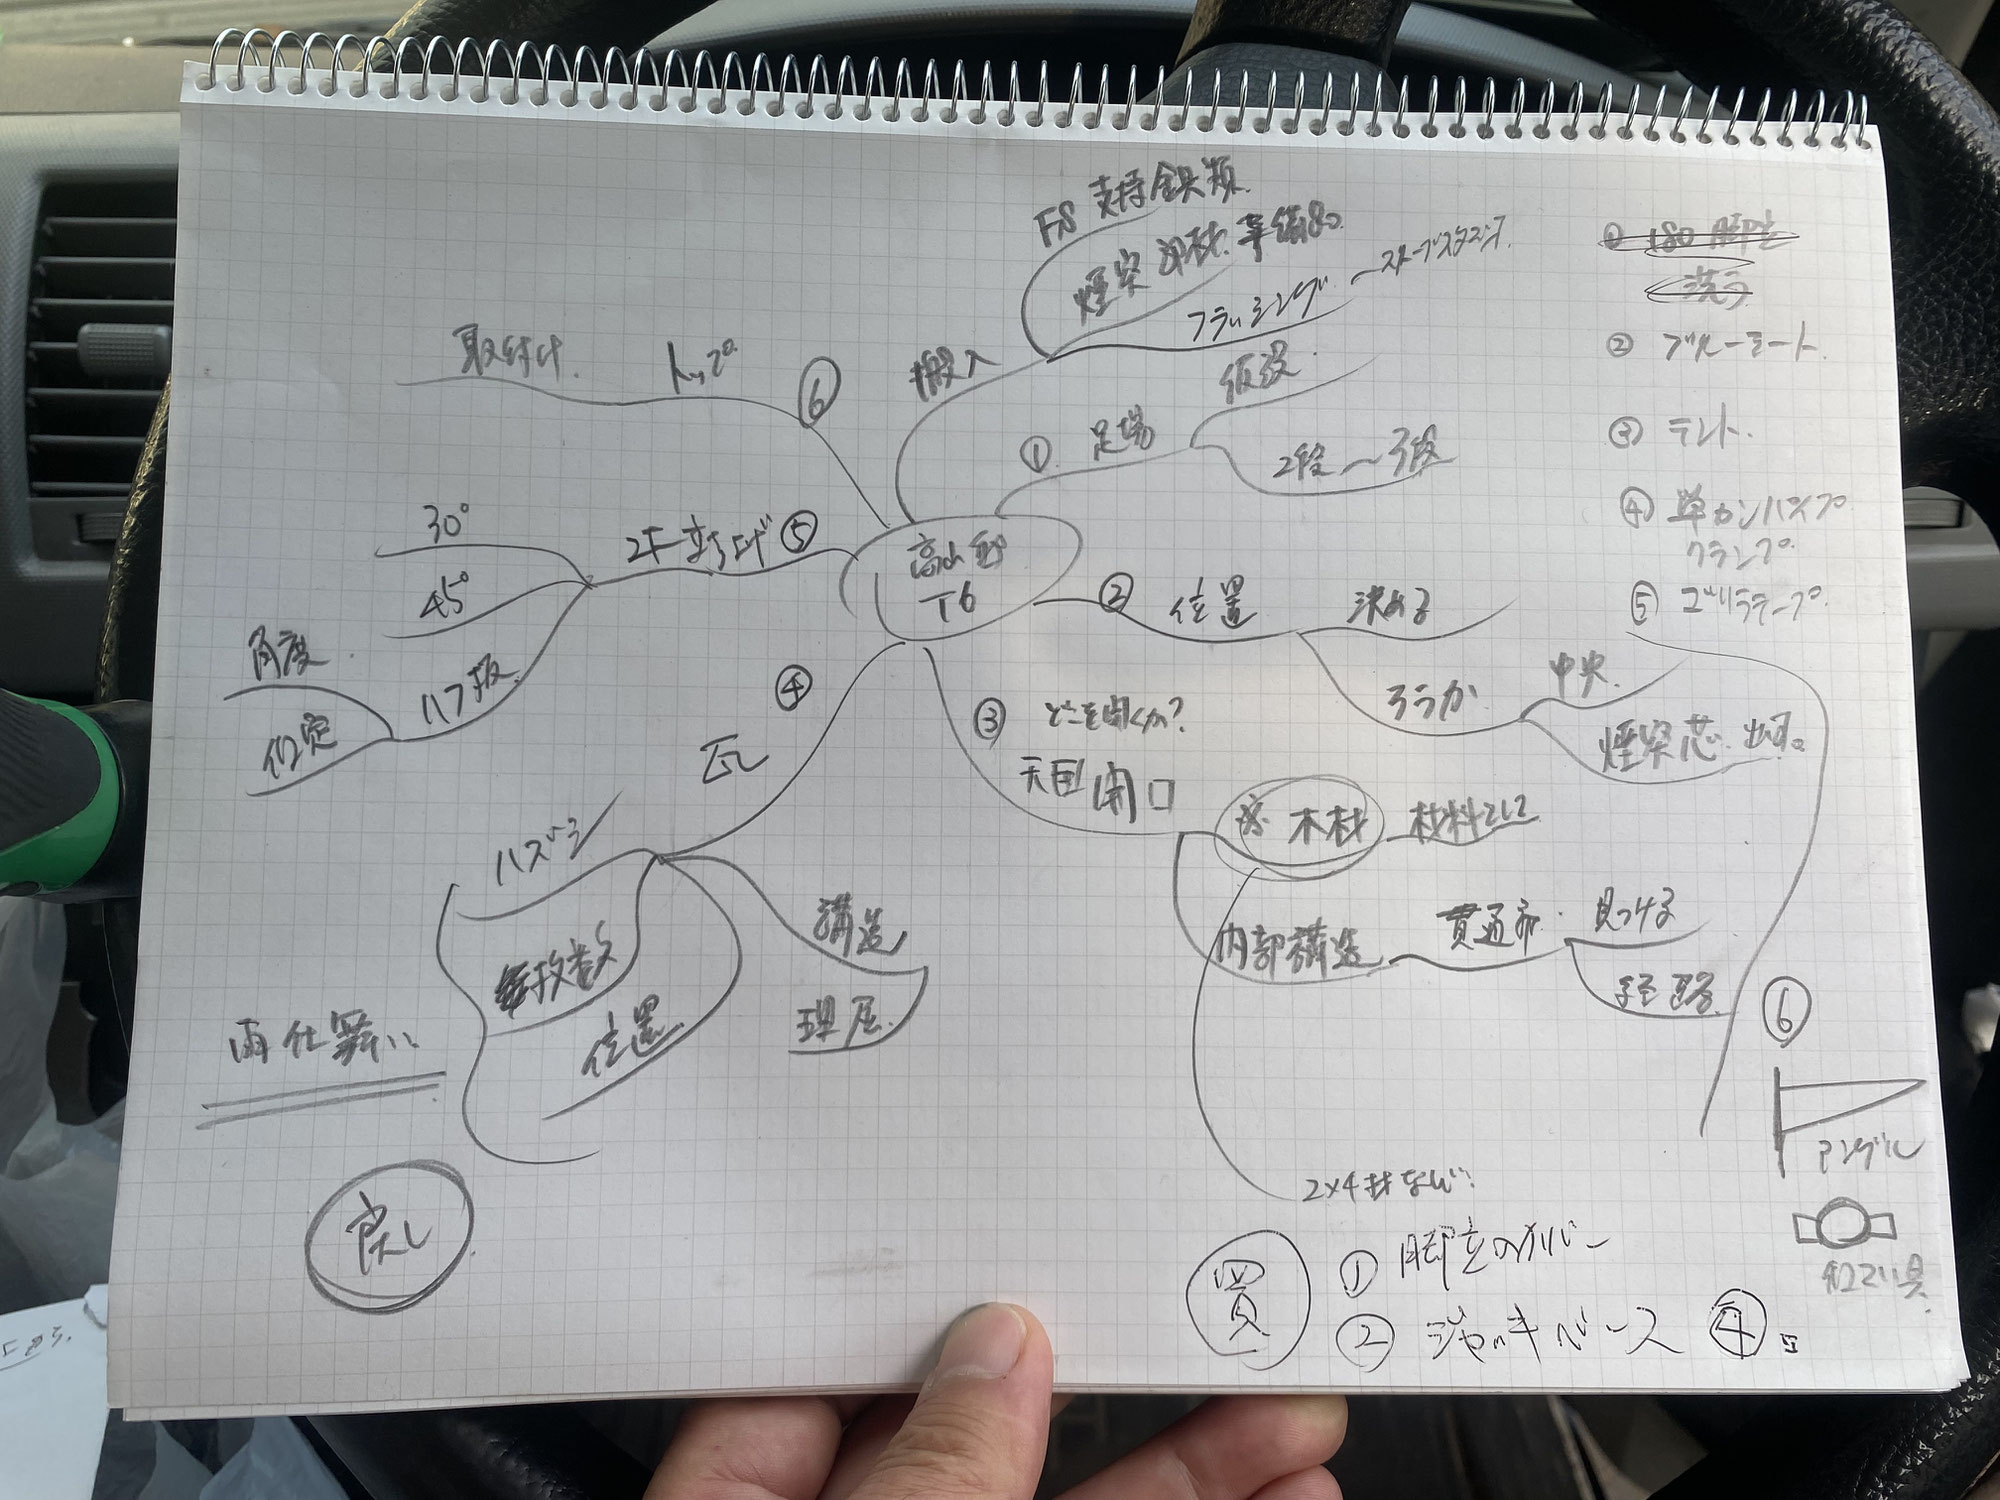 支持金具類
煙突部材
フラッシング 〜 ストーブスタンド
搬入
① 足場
仮設
2段〜3段
T6
② 位置
決める
ろうか
中央
煙突芯
③ どこを開くか?
天井開口
※ 木材
材料
2×4材など
内部構造
貫通部
見つける
経路
④
瓦
ハズシ
枚数
位置
構造
理屈
雨仕舞い
良し
⑤
30°
45°
ハフ板
角度
⑥
トップ
取付け
① 180 脚立
洗う
② ブルーシート
③ テント
④ 単カンパイプ
クランプ
⑤ ゴリラテープ
⑥
アングル
買
① 脚立のカバー
② ジャッキベース ④